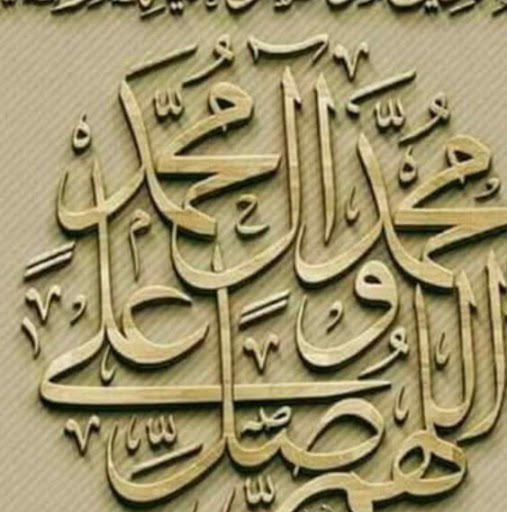 اللهم صلّ على محمّد وآل محمّد